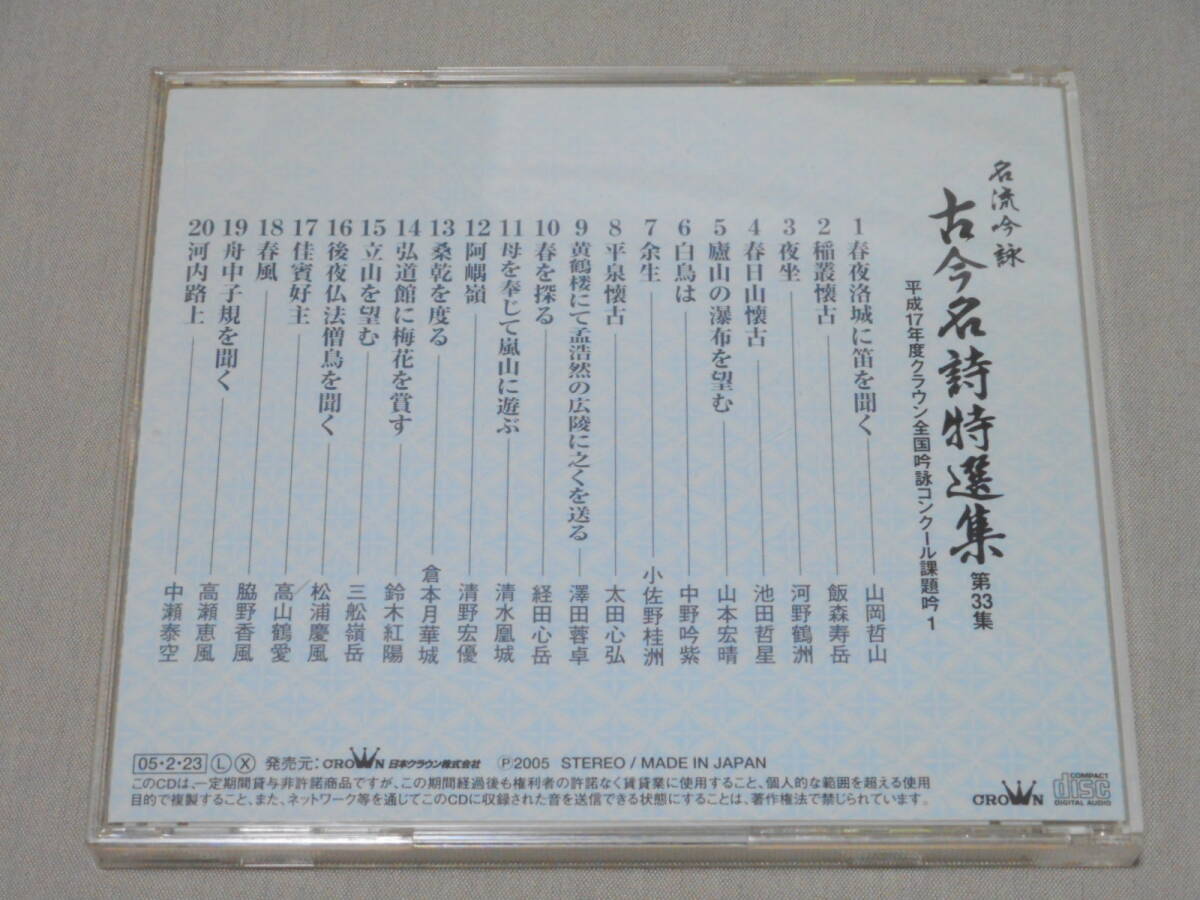 名流吟詠
古今名詩特選集 第33集
平成17年度クラウン全国吟詠コンクール課題吟 1
1 春夜洛城に笛を聞く 山岡哲山
2 稲叢懐古 飯森寿岳
3 夜坐 河野鶴洲
4 春日山懐古 池田哲星
5 廬山の瀑布を望む 山本宏晴
6 白鳥は 中野吟紫
7 余生 小佐野桂洲
8 平泉懐古 太田心弘
9 黄鶴楼にて孟浩然の広陵に之くを送る 澤田蓉卓
10 春を探る 経田心岳
11 母を奉じて嵐山に遊ぶ 清水凰城
12 阿嵎嶺 清野宏優
13 桑乾を度る 倉本月華城
14 弘道館に梅花を賞す 鈴木紅陽
15 立山を望む 三舩嶺岳
16 後夜仏法僧鳥を聞く 松浦慶風
17 佳賓好主 高山鶴愛
18 春風 脇野香風
19 舟中子規を聞く 高瀬恵風
20 河内路上 中瀬泰空
05・2・23 L X 発売元: CROWN 日本クラウン株式会社 ℗2005 STEREO / MADE IN JAPAN
このCDは、一定期間貸与非許諾商品ですが、この期間経過後も権利者の許諾なく賃貸業に使用すること、個人的な範囲を超える使用
目的で複製すること、また、ネットワーク等を通じてこのCDに収録された音を送信できる状態にすることは、著作権法で禁じられています。
CROWN
COMPACT
disc
DIGITAL AUDIO